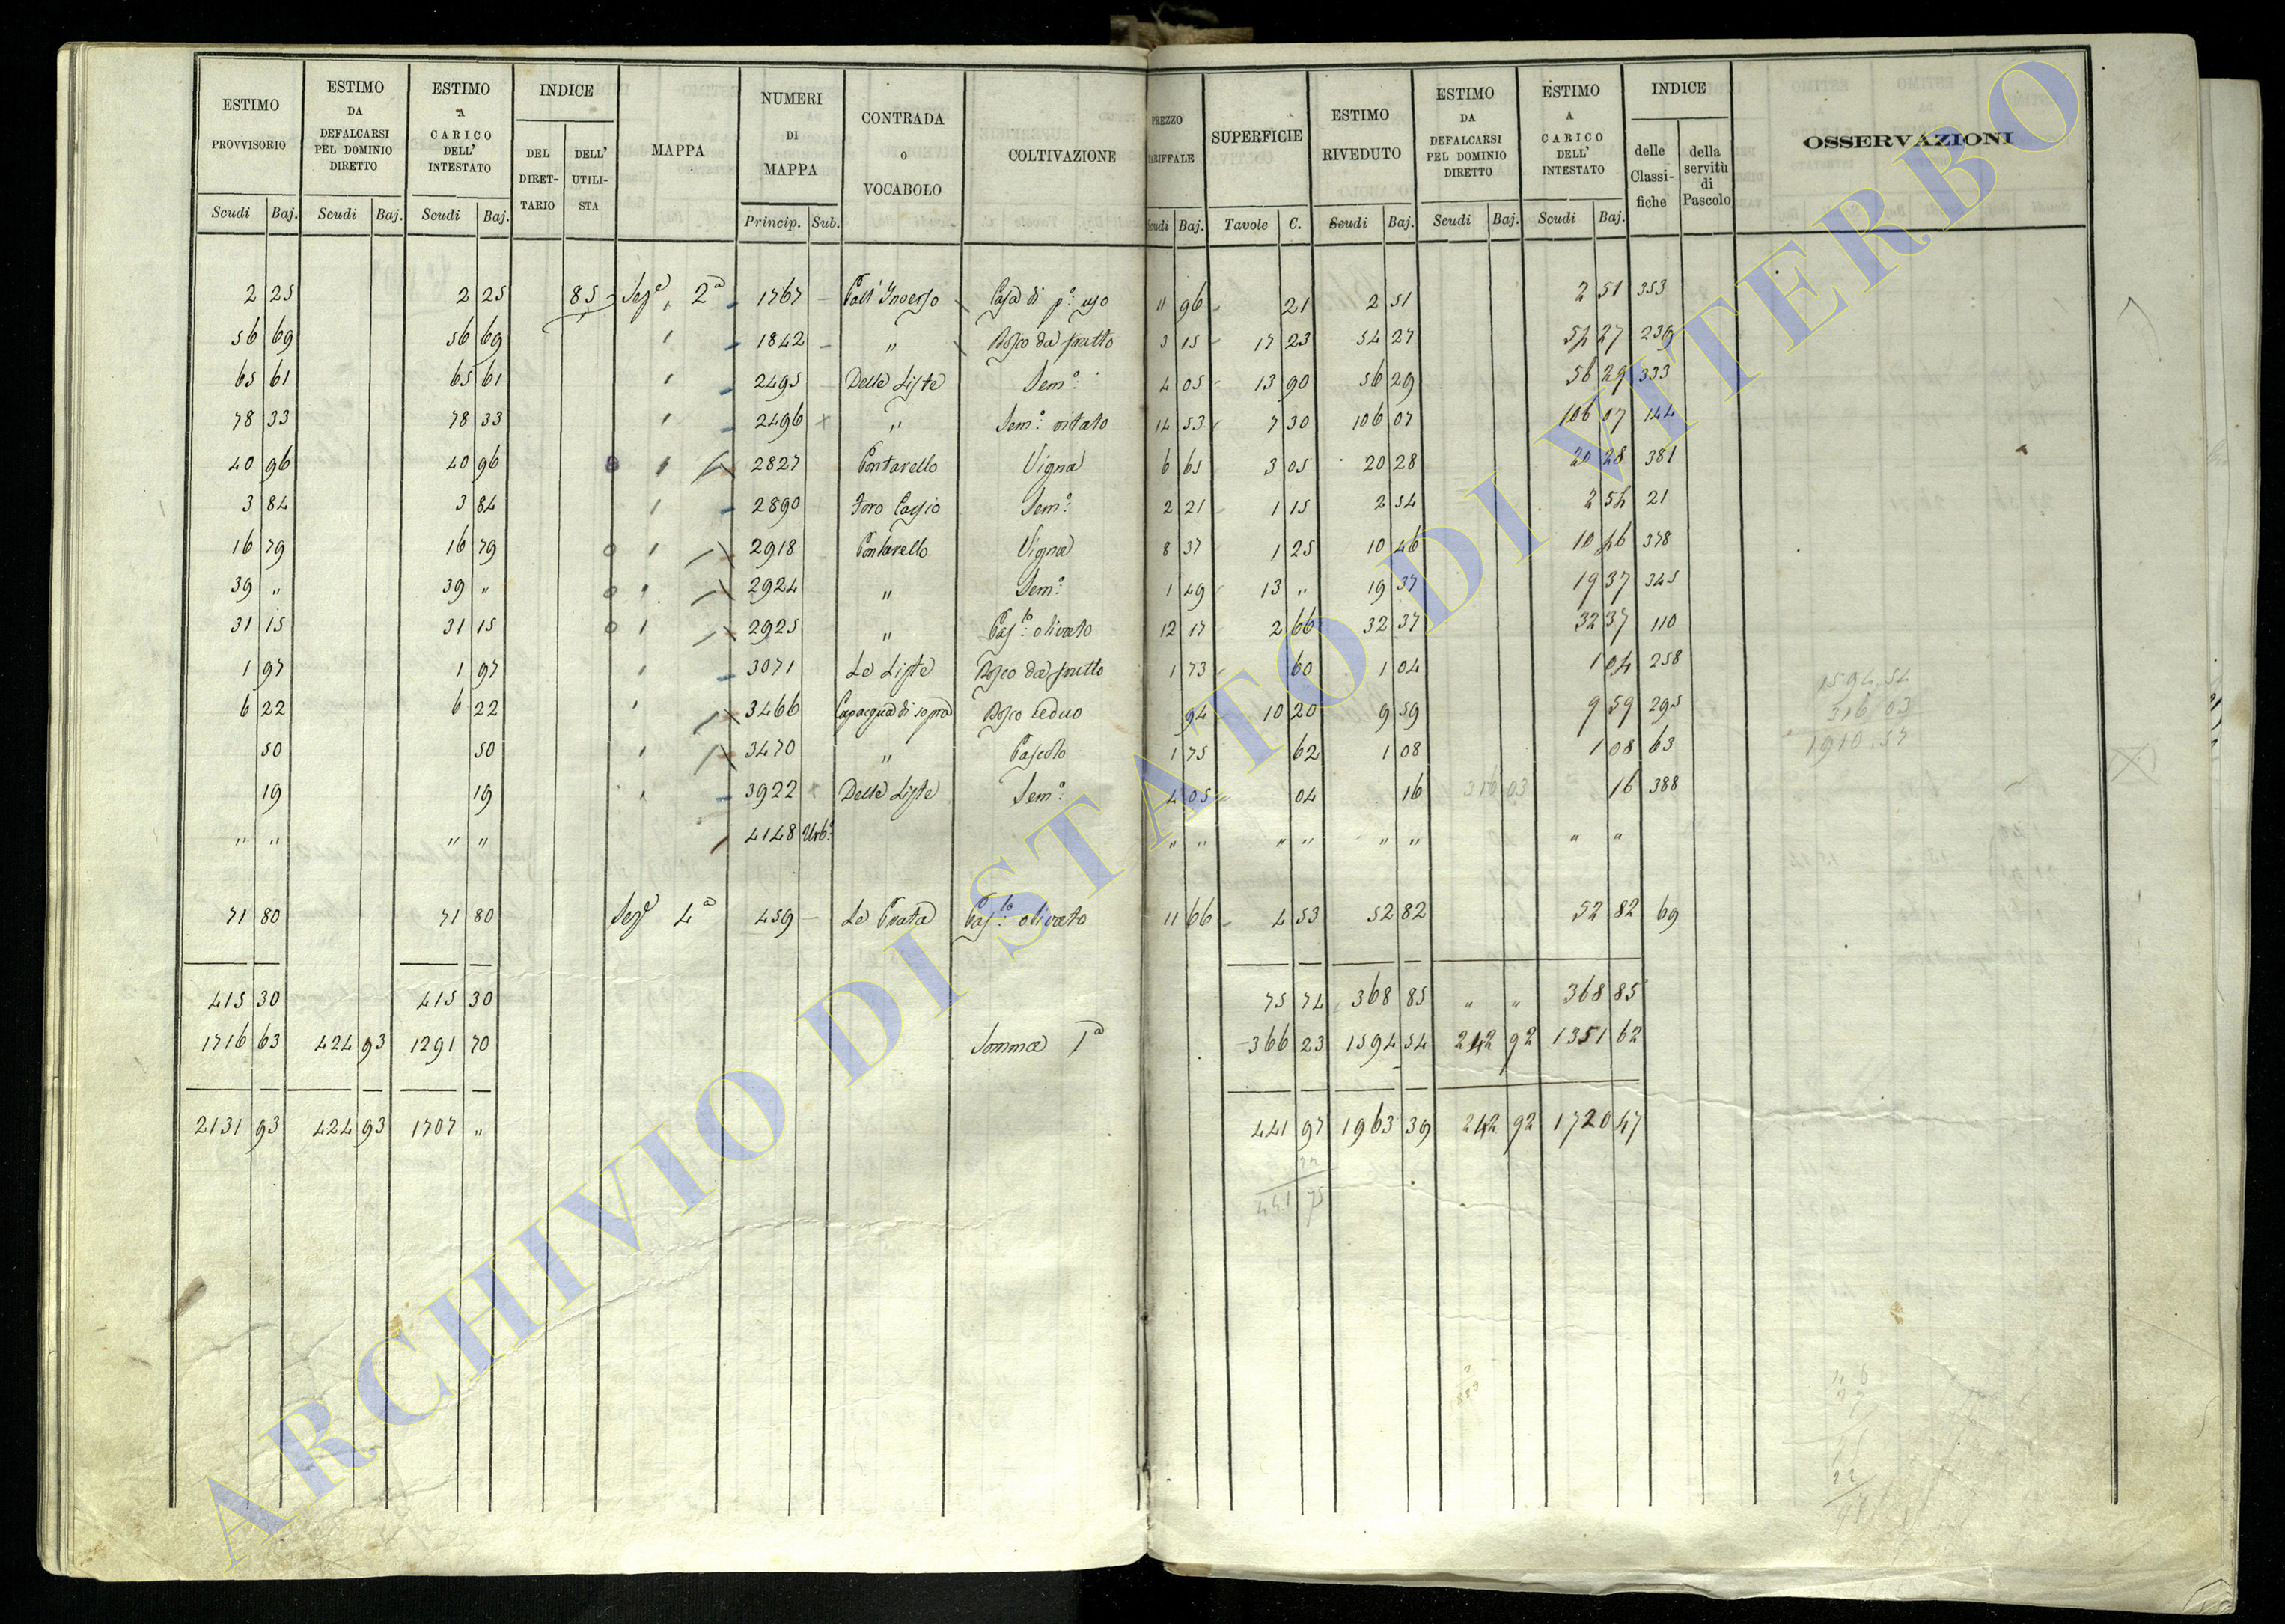 ESTIMO PROVVISORIO | ESTIMO DA DEFALCARSI PEL DOMINIO DIRETTO | ESTIMO A CARICO DELL' INTESTATO | INDICE | MAPPA | NUMERI DI MAPPA | CONTRADA o VOCABOLO | COLTIVAZIONE | PREZZO TARIFFALE | SUPERFICIE | ESTIMO RIVEDUTO | ESTIMO DA DEFALCARSI PEL DOMINIO DIRETTO | ESTIMO A CARICO DELL' INTESTATO | INDICE | OSSERVAZIONI
DEL DIRET-TARIO | DELL' UTILI-STA | delle Classi-fiche | della servitù di Pascolo
Scudi | Baj. | Scudi | Baj. | Scudi | Baj. | Princip. | Sub. | Scudi | Baj. | Tavole | C. | Scudi | Baj. | Scudi | Baj. | Scudi | Baj.
2 25 | 2 25 | 85 | Sez.e 2a | 1767 | | Casa di p.o uso | 11 96 | 21 | 2 51 | 2 51 | 353
56 69 | 56 69 | 1842 | " | Bosco da frutto | 3 15 | 17 23 | 54 27 | 54 27 | 239
65 61 | 65 61 | 2495 | Delle Liste | Sem.o | 4 05 | 13 90 | 56 29 | 56 29 | 333
78 33 | 78 33 | 2496 | " | Sem.o vitato | 14 53 | 7 30 | 106 07 | 106 07 | 144
40 96 | 40 96 | 2827 | Pontarello | Vigna | 6 65 | 3 05 | 20 28 | 20 28 | 381
3 84 | 3 84 | 2890 | Foro Cassio | Sem.o | 2 21 | 1 15 | 2 54 | 2 54 | 21
16 79 | 16 79 | 2918 | Pontarello | Vigna | 8 37 | 1 25 | 10 46 | 10 46 | 378
39 " | 39 " | 2924 | " | Sem.o | 1 49 | 13 " | 19 37 | 19 37 | 345
31 15 | 31 15 | 2925 | " | Pas.lo olivato | 12 17 | 2 66 | 32 37 | 32 37 | 110
1 97 | 1 97 | 3071 | Le Liste | Bosco da frutto | 1 73 | 60 | 1 04 | 1 04 | 258
6 22 | 6 22 | 3466 | Capacqua di sopra | Bosco ceduo | 94 | 10 20 | 9 59 | 9 59 | 295
50 | 50 | 3470 | " | Pascolo | 1 75 | 62 | 1 08 | 1 08 | 63
19 | 19 | 3922 | Delle Liste | Sem.o | 4 05 | 04 | 16 | 316 03 | 16 | 388
" " | " " | 4148 | Urb.o | " " | " " | " " | " "
71 80 | 71 80 | Sez.e 4a | 459 | Le Prata | Pas.lo olivato | 11 66 | 4 53 | 52 82 | 52 82 | 69
415 30 | 415 30 | 75 74 | 368 85 | " " | 368 85
1716 63 | 424 93 | 1291 70 | Somma 1a | 366 23 | 1594 54 | 242 92 | 1351 62
2131 93 | 424 93 | 1707 " | 441 97 | 1963 39 | 242 92 | 1720 47
22
441 75
1594.54
316 03
1910.57
ARCHIVIO DI STATO DI VITERBO